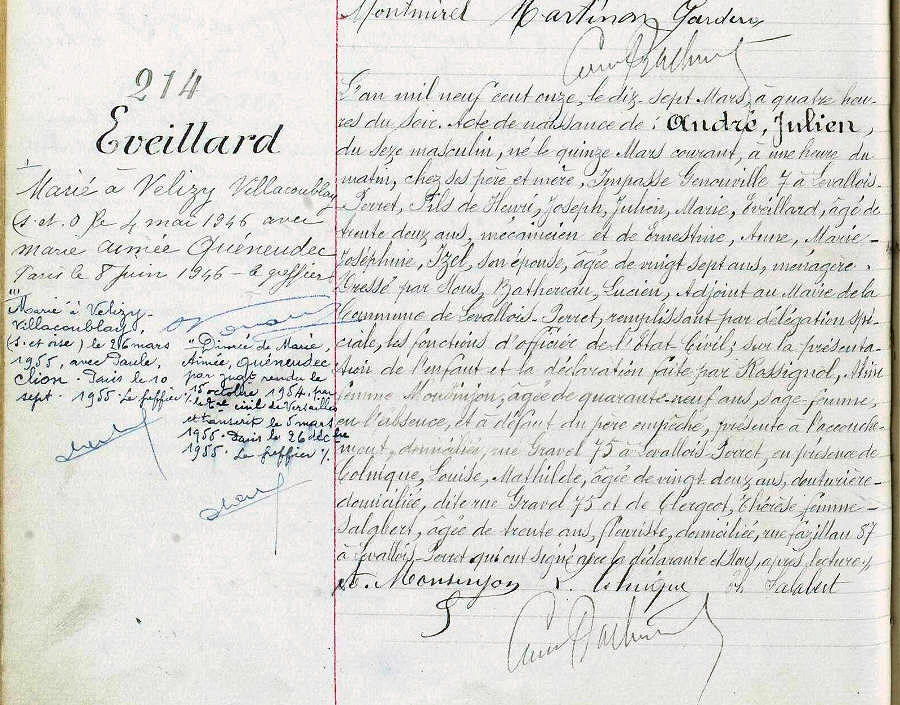 Montmirel Martinon Gardeny
214
Eveillard
I
Marié à Velizy Villacoublay
(S. et. O) le 4 mai 1946 avec
marie aimée Quéneudec
Paris le 8 juin 1946 - le greffier
III
Marié à Velizy-
Villacoublay,
(S. et oise) le 26 mars
1955, avec Paule,
Clion. Paris le 10
sept. 1955 Le Greffier
II Divorcé de Marie,
Aimée, Quéneudec
par jugt rendu le
15 octobre 1954, par
le Tral civil de Versailles
et transcrit le 5 mars
1955. Paris le 26 décbre
1955. Le Greffier %
L'an mil neuf cent onze, le dix sept Mars, à quatre heu-
res du soir. Acte de naissance de : André, Julien,
du sexe masculin, né le quinze Mars courant, à une heure du
matin, chez ses père et mère, Impasse Genouville 7 à Levallois-
Perret, Fils de Henri, Joseph, Julien, Marie, Eveillard, âgé de
trente deux ans, mécanicien et de Ernestine, Anne, Marie-
Joséphine, Izel, son épouse, âgée de vingt sept ans, ménagère.
Dressé par Nous, Bathereau, Lucien, Adjoint au Maire de la
Commune de Levallois-Perret, remplissant par délégation spé-
ciale, les fonctions d'officier de l'Etat Civil; sur la présenta-
tion de l'enfant et la déclaration faite par Rossignol,
femme Monsinjon, âgée de quarante neuf ans, sage-femme,
en l'absence, et à défaut du père empêché, présente à l'accouche-
ment, domiciliée, rue Gravel 75 à Levallois-Perret, en présence de
Colnique, Louise, Mathilde, âgée de vingt deux ans, couturière-
domiciliée, dite rue Gravel 75 et de Clergeot, Thérèse femme-
Salabert, âgée de trente ans, fleuriste, domiciliée, rue Fazillau 87
à Levallois-Perret qui ont signé avec la déclarante et Nous, après lecture.
Monsinjon L. Colnique Th Salabert